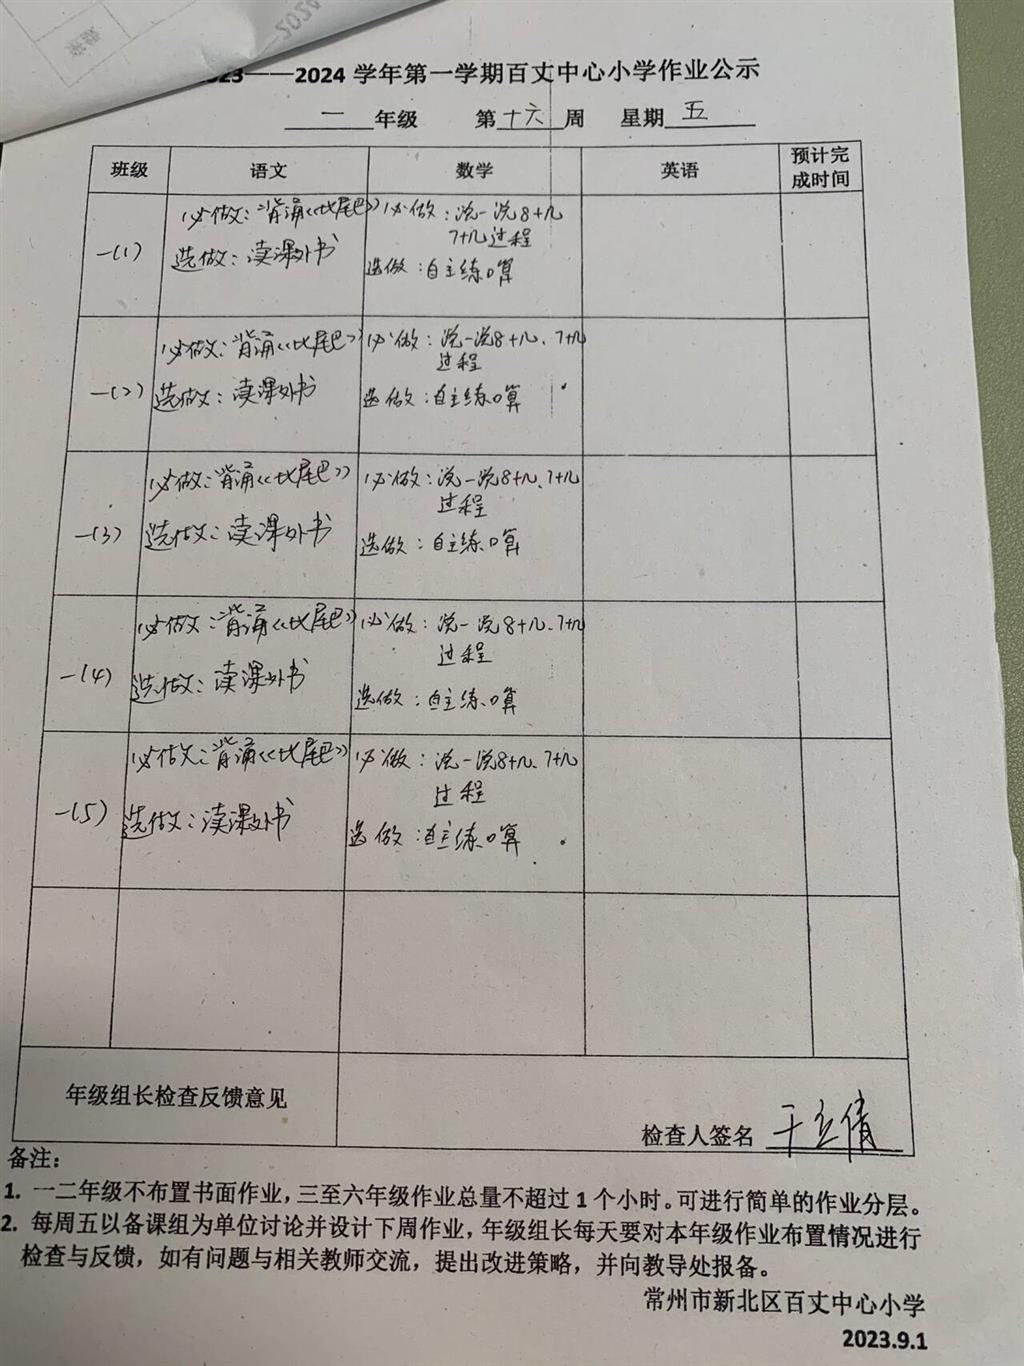 2023——2024 学年第一学期百丈中心小学作业公示
一 年级 第十六周 星期五
班级 语文 数学 英语 预计完
成时间
一(1) 必做：背诵《比尾巴》 必做：说一说8+几
7+几过程
选做：读课外书 选做：自主练口算
一(2) 必做：背诵《比尾巴》 必做：说一说8+几、7+几
过程
选做：读课外书 选做：自主练口算
一(3) 必做：背诵《比尾巴》 必做：说一说8+几、7+几
过程
选做：读课外书 选做：自主练口算
一(4) 必做：背诵《比尾巴》 必做：说一说8+几、7+几
过程
选做：读课外书 选做：自主练口算
一(5) 必做：背诵《比尾巴》 必做：说一说8+几、7+几
过程
选做：读课外书 选做：自主练口算
年级组长检查反馈意见
检查人签名 于立倩
备注：
1. 一二年级不布置书面作业，三至六年级作业总量不超过 1 个小时。可进行简单的作业分层。
2. 每周五以备课组为单位讨论并设计下周作业，年级组长每天要对本年级作业布置情况进行
检查与反馈，如有问题与相关教师交流，提出改进策略，并向教导处报备。
常州市新北区百丈中心小学
2023.9.1